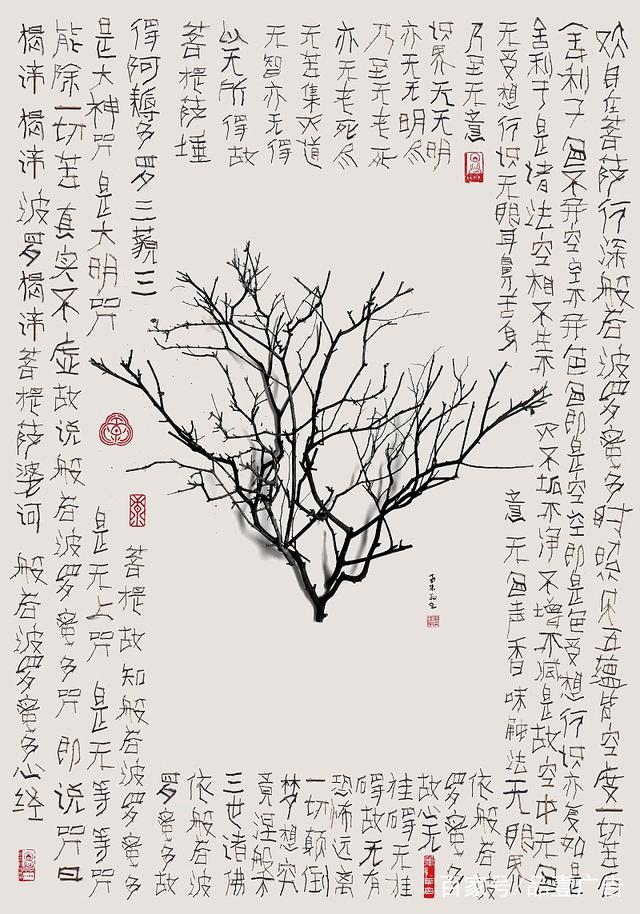 观自在菩萨行深般若波罗蜜多时照见五蕴皆空度一切苦厄
舍利子色不异空空不异色色即是空空即是色受想行识亦复如是
舍利子是诸法空相不生不灭不垢不净不增不减是故空中无色
无受想行识无眼耳鼻舌身
意无色声香味触法无眼界
乃至无意
识界无无明
亦无无明尽
乃至无老死
亦无老死尽
无苦集灭道
无智亦无得
以无所得故
菩提萨埵
依般若波
罗蜜多
故心无
挂碍无挂
碍故无有
恐怖远离
一切颠倒
梦想究
竟涅般
三世诸佛
依般若波
罗蜜多故
得阿耨多罗三藐三
菩提故知般若波罗蜜多
是大神咒是大明咒
是无上咒是无等等咒
能除一切苦真实不虚故说般若波罗蜜多咒即说咒曰
揭谛揭谛波罗揭谛菩提萨婆诃
般若波罗蜜多心经
百家号/品壹广告